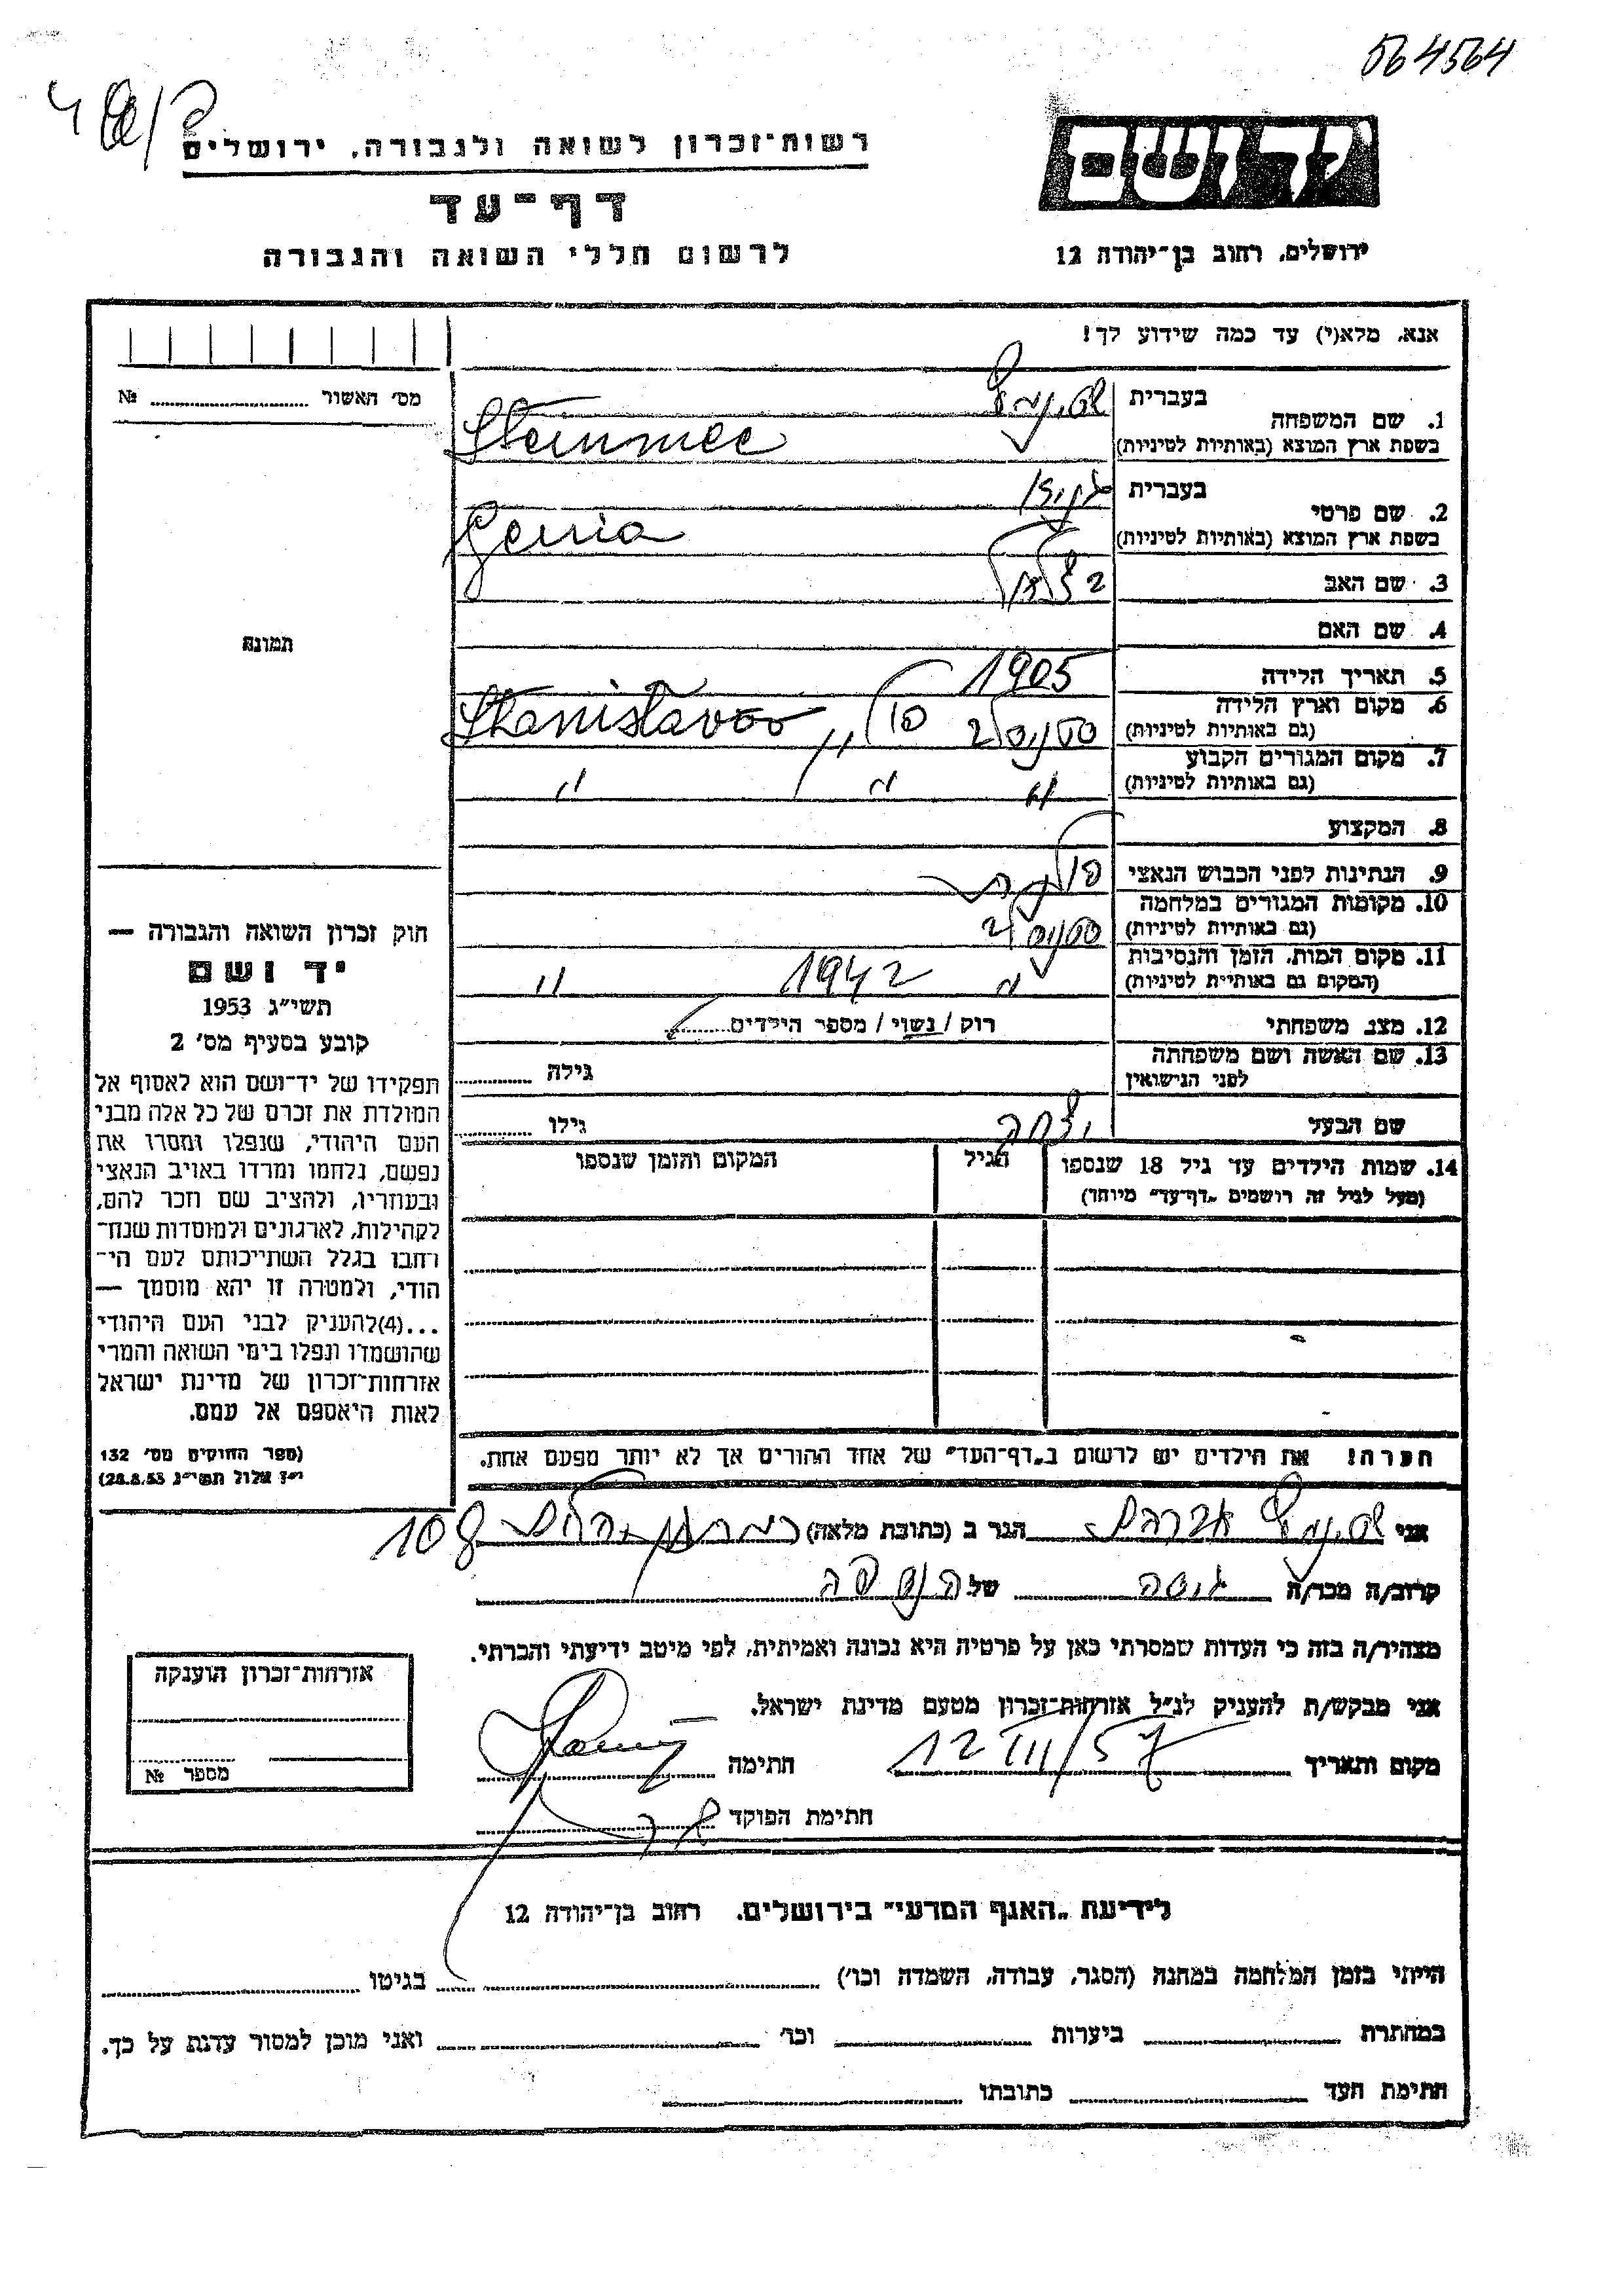 564564
רשות־זכרון לשואה ולגבורה, ירושלים
דף־עד
לרשום חללי השואה והגבורה
יד ושם
ירושלים, רחוב בן־יהודה 12
אנא, מלא(י) עד כמה שידוע לך!
מס׳ האשור № 
1. שם המשפחה
בעברית
שטיינמץ
בשפת ארץ המוצא (באותיות לטיניות)
Steinmec
2. שם פרטי
בעברית
בשפת ארץ המוצא (באותיות לטיניות)
Genia
3. שם האב
4. שם האם
5. תאריך הלידה
1905
6. מקום וארץ הלידה
(גם באותיות לטיניות)
Stanislavov
7. מקום המגורים הקבוע
(גם באותיות לטיניות)
״ ״ ״
8. המקצוע
9. הנתינות לפני הכבוש הנאצי
10. מקומות המגורים במלחמה
(גם באותיות לטיניות)
11. מקום המות, הזמן והנסיבות
(המקום גם באותיות לטיניות)
״ 1942 ״
12. מצב משפחתי
רוק / נשוי / מספר הילדים
13. שם האשה ושם משפחתה
לפני הנישואין
גילה
שם הבעל
גילו
14. שמות הילדים עד גיל 18 שנספו
(מעל לגיל זה רושמים „דף־עד” מיוחד)
הגיל
המקום והזמן שנספו
הערה! את הילדים יש לרשום ב„דף־העד” של אחד ההורים אך לא יותר מפעם אחת.
תמונה
חוק זכרון השואה והגבורה —
יד ושם
תשי״ג 1953
קובע בסעיף מס׳ 2
תפקידו של יד־ושם הוא לאסוף אל
המולדת את זכרם של כל אלה מבני
העם היהודי, שנפלו ומסרו את
נפשם, נלחמו ומרדו באויב הנאצי
ובעוזריו, ולהציב שם וזכר להם,
לקהילות, לארגונים ולמוסדות שנח־
רחבו בגלל השתייכותם לעם הי־
הודי, ולמטרה זו יהא מוסמך —
...(4)להעניק לבני העם היהודי
שהושמדו ונפלו בימי השואה והמרי
אזרחות־זכרון של מדינת ישראל
לאות היאספם אל עמם.
(ספר החוקים מס׳ 132
י״ז אלול תשי״ג 28.8.53)
אני שטיינמץ אברהם הגר ב (כתובת מלאה) 108
קרוב/ה מכר/ה גיסה של הנספה
מצהיר/ה בזה כי העדות שמסרתי כאן על פרטיה היא נכונה ואמיתית, לפי מיטב ידיעתי והכרתי.
אני מבקש/ת להעניק לנ״ל אזרחות־זכרון מטעם מדינת ישראל.
מקום ותאריך 12 III/57 חתימה
חתימת הפוקד
אזרחות־זכרון הוענקה
מספר №
לידיעת „האגף המדעי” בירושלים, רחוב בן־יהודה 12
הייתי בזמן המלחמה במחנה (הסגר, עבודה, השמדה וכו׳) בגיטו
במחתרת ביערות וכו׳ ואני מוכן למסור עדות על כך.
חתימת העד כתובתו